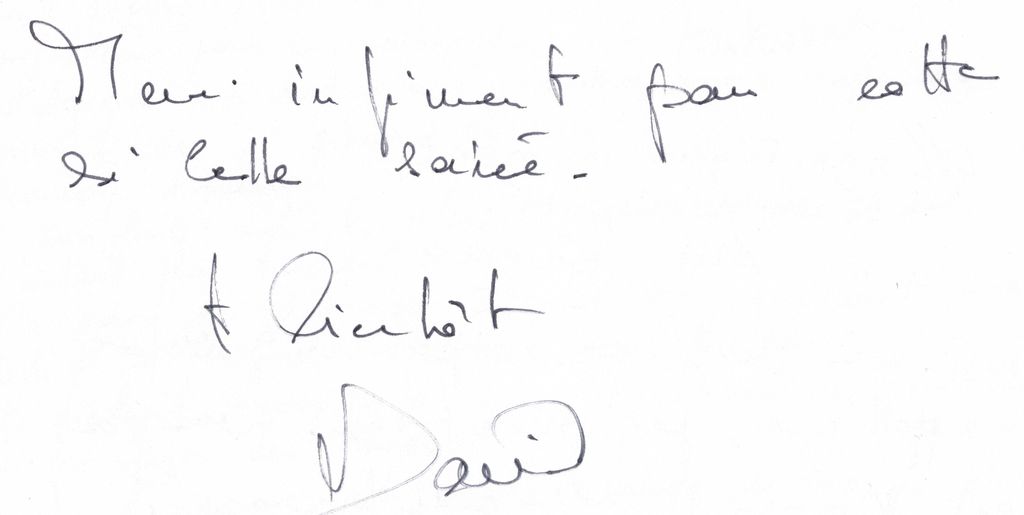 Merci infiniment pour cette
si belle soirée.
A bientôt
David